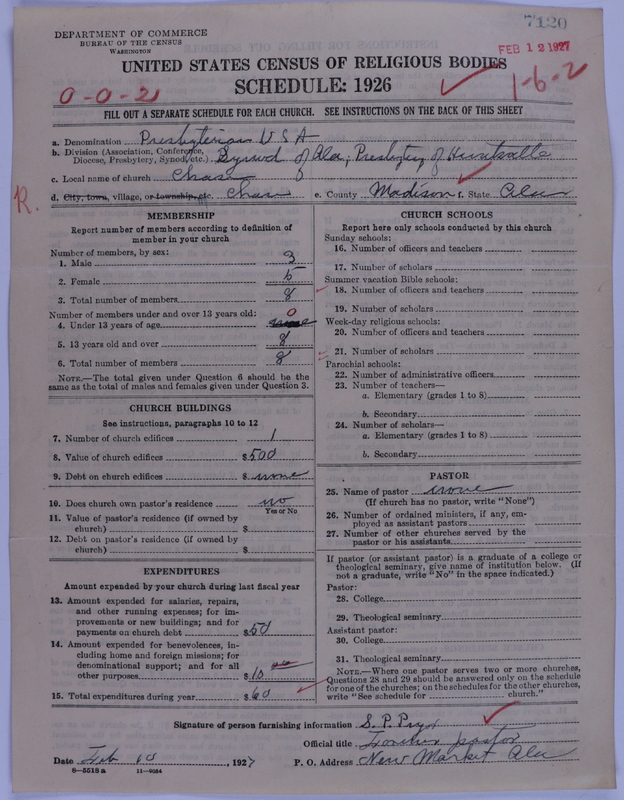 7120
DEPARTMENT OF COMMERCE
BUREAU OF THE CENSUS
WASHINGTON
FEB 12 1927
UNITED STATES CENSUS OF RELIGIOUS BODIES
SCHEDULE: 1926
0-0-2
1-6-2
FILL OUT A SEPARATE SCHEDULE FOR EACH CHURCH. SEE INSTRUCTIONS ON THE BACK OF THIS SHEET
a. Denomination Presbyterian U S A
b. Division (Association, Conference, Diocese, Presbytery, Synod, etc.) Synod of Ala, Presbytery of Huntsville
c. Local name of church Chase
R.
d. City, town, village, or township, etc. Chase e. County Madison f. State Ala
MEMBERSHIP
Report number of members according to definition of
member in your church
Number of members, by sex:
1. Male 3
2. Female 5
3. Total number of members 8
Number of members under and over 13 years old:
4. Under 13 years of age 0
5. 13 years old and over 8
6. Total number of members 8
NOTE.—The total given under Question 6 should be the
same as the total of males and females given under Question 3.
CHURCH BUILDINGS
See instructions, paragraphs 10 to 12
7. Number of church edifices 1
8. Value of church edifices $500
9. Debt on church edifices $ none
10. Does church own pastor's residence no
Yes or No
11. Value of pastor's residence (if owned by
church) $
12. Debt on pastor's residence (if owned by
church) $
EXPENDITURES
Amount expended by your church during last fiscal year
13. Amount expended for salaries, repairs,
and other running expenses; for im-
provements or new buildings; and for
payments on church debt $50
14. Amount expended for benevolences, in-
cluding home and foreign missions; for
denominational support; and for all
other purposes $10
15. Total expenditures during year $60
CHURCH SCHOOLS
Report here only schools conducted by this church
Sunday schools:
16. Number of officers and teachers
17. Number of scholars
Summer vacation Bible schools:
18. Number of officers and teachers
19. Number of scholars
Week-day religious schools:
20. Number of officers and teachers
21. Number of scholars
Parochial schools:
22. Number of administrative officers
23. Number of teachers—
a. Elementary (grades 1 to 8)
b. Secondary
24. Number of scholars—
a. Elementary (grades 1 to 8)
b. Secondary
PASTOR
25. Name of pastor none
(If church has no pastor, write "None")
26. Number of ordained ministers, if any, em-
ployed as assistant pastors
27. Number of other churches served by the
pastor or his assistants
If pastor (or assistant pastor) is a graduate of a college or
theological seminary, give name of institution below. (If
not a graduate, write "No" in the space indicated.)
Pastor:
28. College
29. Theological seminary
Assistant pastor:
30. College
31. Theological seminary
NOTE.—Where one pastor serves two or more churches,
Questions 28 and 29 should be answered only on the schedule
for one of the churches; on the schedules for the other churches,
write "See schedule for church."
Signature of person furnishing information S. P. Pryor
Official title Former pastor
Date Feb 10, 1927 P. O. Address New Market Ala
8—5518 a 11—9054